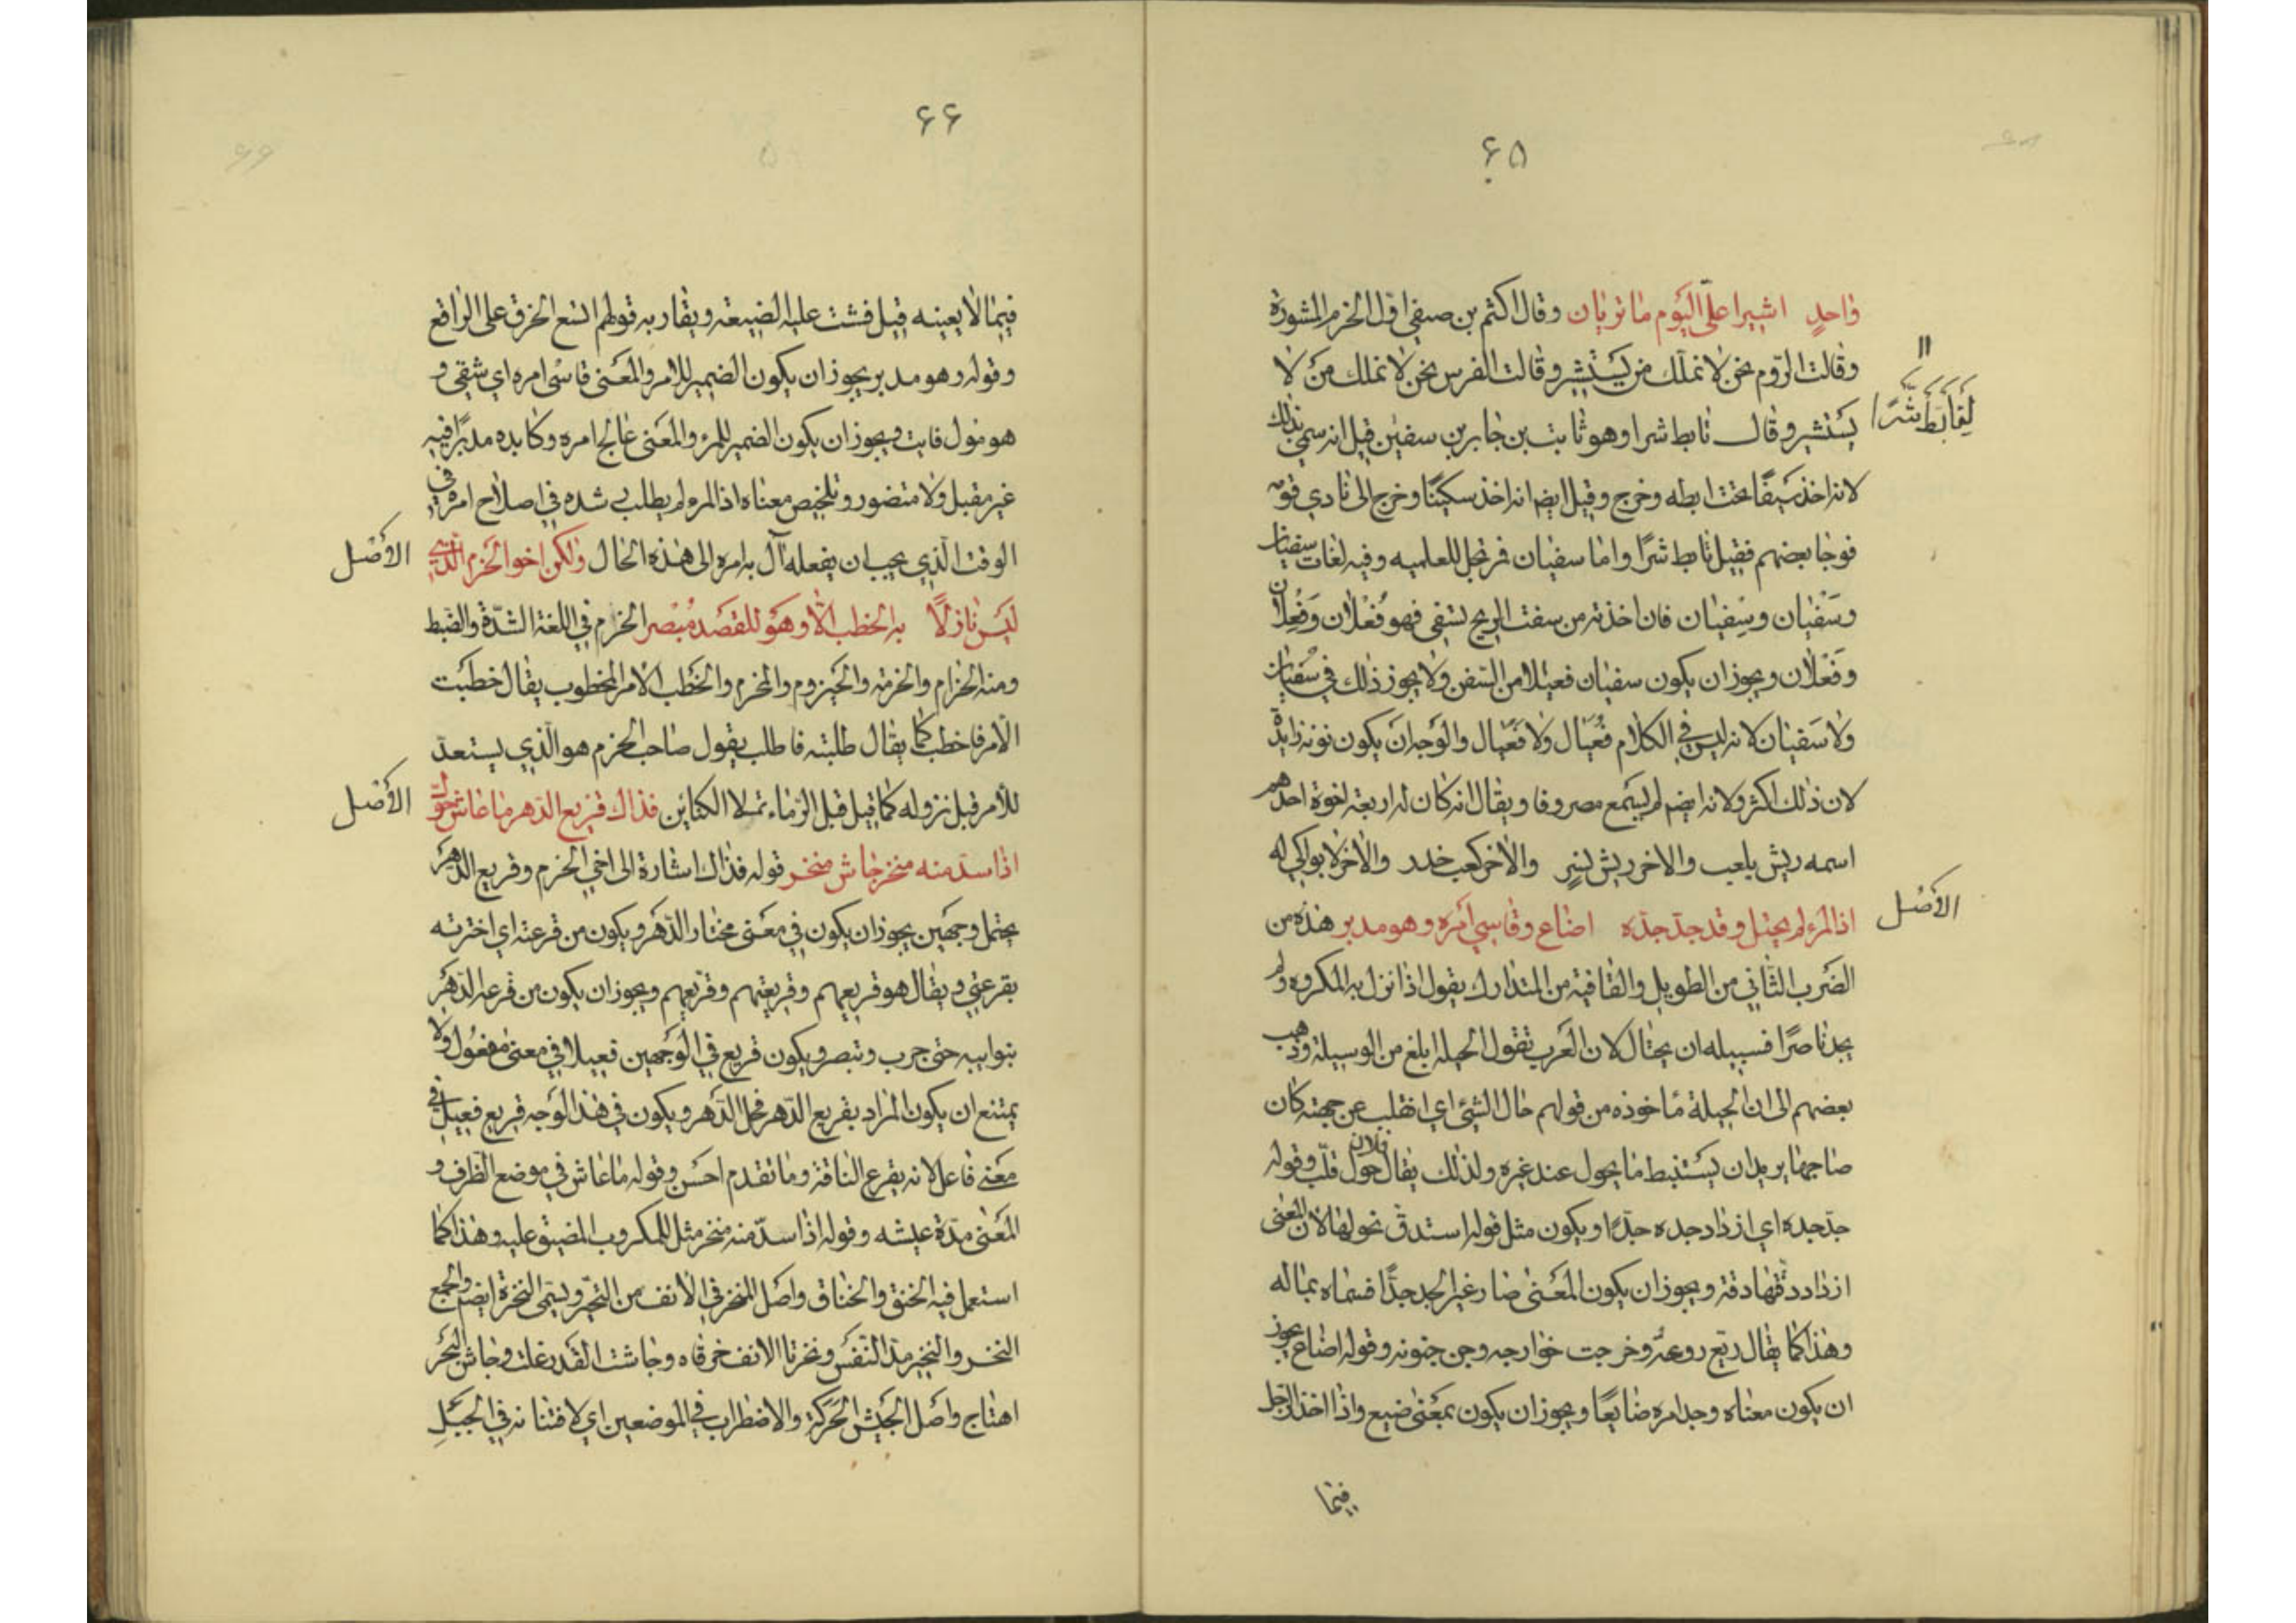 ۶۵
واحدٍ اشيرا علىّ اليَوم ما تريان وقال اكثم بن صيفي اوّل الحزم المشورة
وقالت الرّوم نحن لا نملّك من يَستشير وقالت الفرس نحن لا نملك من لا
لِتَأَبَّطَ شَرًّا
يستشير وقال تابط شرا وهو ثابت بن جابر بن سفين قيل انه سمي بذلك
لانه اخذ سَيفًا تحت ابطه وخرج وقيل ايضم انه اخذ سكينًا وخرج الى نادي قومه
فوجا بعضهم فقيل تابط شرًا واما سفيان فمرتجل للعلميه وفيه لغات سفيان
وسَفْيان وسِفيان فان اخذته من سفت الريح تسفي فهو فُعْلان وَفِعلان
وفَعْلان ويجوز ان يكون سفيان فعيلا من السفن ولا يجوز ذلك في سُفيان
ولا سَفيان لانه ليس في الكلام فُعيَال ولا فَعيَال والوَجه ان يكون نونه زايدة
لان ذلك اكثر ولانه ايضم لم يسمع مصروفا ويقال انه كان له اربعة اخوة احدهم
اسمه ريش بلعب والاخر ريش نسر والاخر كعب خدد والاخر لا بواكي له
الاَصْل
اذا المرء لم يحتل وقد جدّ جدّه اضاع وقاسي اَمره وهو مدبر هذه من
الضَرب الثاني من الطويل والقافية من المتدارك يقول اذا نزل به المكروه ولم
يجد ناصرًا فسبيله ان يحتال لان العَرب تقول الحيلة ابلغ من الوسيلة وذهب
بعضهم الى ان الحيلة ماخوذه من قولهم حال الشئ اي انقلب عن جهته كان
صاحبها يريد ان يَستنبط ما يحول عند غيره ولذلك يقال فلان حول قلّب وقوله
جدّ جده اي ازداد جده جدًّا ويكون مثل قوله استدقّ نحولها لان المعنى
ازداد دقتها دقة ويجوز ان يكون المعَنى صار غير الجد جدًّا فسماه بماله
وهذا كما يقال ريّع روعه وخرجت خوارجه وجن جنونه وقوله اضاع يجوز
ان يكون معناه وجد امره ضايعًا ويجوز ان يكون بمعنى ضيع واذا اخذ الرجل
فيما
۶۶
فيما لا يعينه قيل فشت عليه الضيعة ويقاربه قولهم اتسع الخرق على الراقع
وقوله وهو مدبر يجوز ان يكون الضمير للامر والمعَنى قاسَى امره اي شقي و
هو مول فايت ويجوز ان يكون الضمير للمرء والمعَنى عالج امره وكابده مدبرًا فيه
غير مقبل ولا متصور وتلخيص معناه اذا المرء لم يطلب رشده في اصلاح امره في
الوقت الّذي يجب ان يفعله آل به امره الى هذه الحال ولكن اخو الحَزم الّذي
الاَصْل
ليَس نازلًا به الخطب الّا وهَو للقصَد مُبْصر الحزم في اللغة الشدّة والضبط
ومنه الحزام والحزمة والحَيزوم والمحزم والخَطب الامر المخطوب يقال خطبت
الاَمر فاخطب كما يقال طلبته فاطلب يقول صاحب الحزم هو الّذي يستعدّ
للاَمر قبل نزوله كما قيل قبل الرّماء تملا الكنائن فذاك قريع الدّهر ما عاش حوّل
الاَصْل
اذا سدّ منه منخر جاش منخر قوله فذاك اشارة الى اخي الحزم وقريع الدّهَر
يحتمل وجهين يجوز ان يكون في معَنى مختار الدّهَر ويكون من قرعته اي اخترته
بقرعتي ويقال هو قريعهم وقريعتهم وقريعهم ويجوز ان يكون من قرعه الدّهَر
بنوايبه حتى جرب وتبصر ويكون قريع في الوَجهين فعيلا في معنى مفعُول ولا
يمتنع ان يكون المراد بقريع الدّهر فحل الدّهر ويكون في هذا الوَجه قريع فعيل في
معَنى فاعل لانه يقرع الناقة وما تقدم احسَن وقوله ما عاش في موضع الظرف و
المَعنى مدّة عيشه وقوله اذا سدّ منه منخر مثل للمكروب المضيق عليه وهذا كما
استعمل فيه الخنق والخناق واصَل المنخر في الانف من النخير وليسَمى النخرة ايضم والجمع
النخر والنخير مدّ النَفَس ونخرتا الانف خرقاه وجاشت القدر غلت وجاش البَحَر
اهتاج واصَل الجَيش الحَركة والاضطراب في الموضعين اي لافتنانه في الحِيَلِ